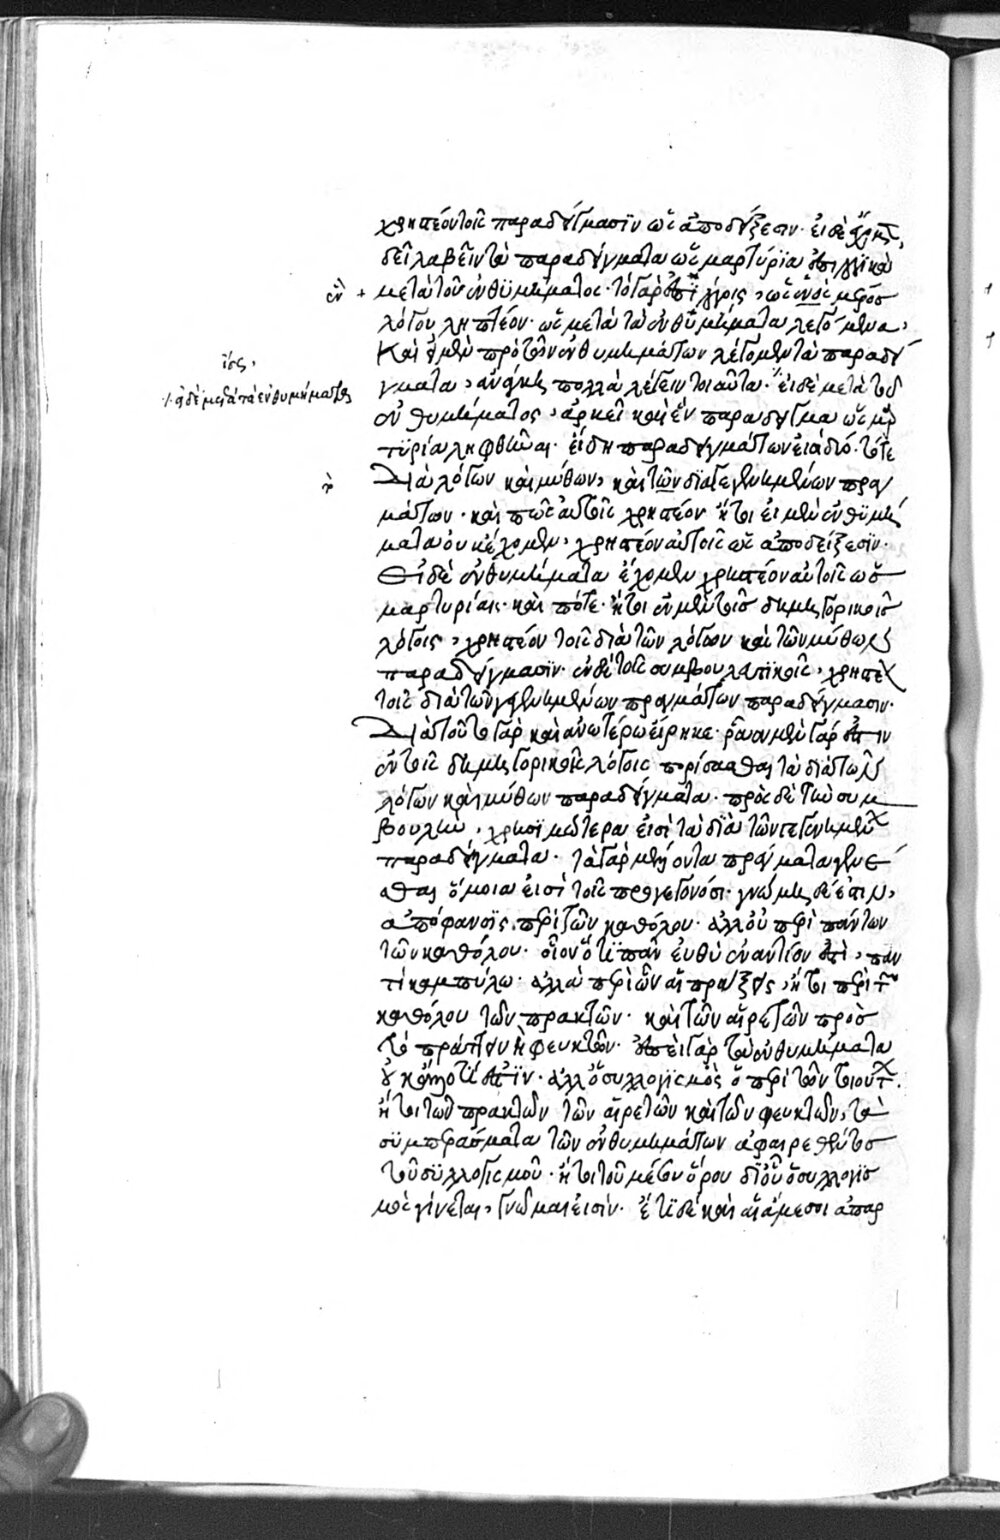 χρηστέον τοῖς παραδείγμασϊν ὡς ἀποδείξεσιν· εἰ δὲ
δεῖ λαβεῖν τὰ παραδείγματα ὡς μαρτύρϊα
μετὰ τοῦ ἐνθϋμήματος· τὸ γὰρ
λόγου ληπτέον· ὡς μετὰ τὰ ἐνθϋμήματα λεγόμενα,
Καὶ εἰ μὲν πρὸ τῶν ἐνθυμημάτων λέγομεν τὰ παραδεί
γματα, ἀνάγκη πολλὰ λέγειν τοιαῦτα· εἰ δὲ μετὰ τοῦ
. ἢ δὲ μετὰ τὰ ἐνθυμήματος
ἐνθυμήματος, ἀρκεῖ καὶ ἓν παράδειγμα ὡς μαρ
τϋρία ληφθῆναι· εἴδη παραδειγμάτων εἰσὶ δύο· τό τε
Διὰ λόγων καὶ μύθων, καὶ τῶν δϊὰ γεγενημένων πραγ
μάτων· καὶ πῶς αὐτοῖς χρηστέον· ἤτοι εἰ μὲν ἐνθϋμή
ματα οὐκ ἔχομεν, χρηστέον αὐτοῖς ὡς ἀποδείξεσϊν·
Εἰ δὲ ἐνθυμήματα ἔχομεν χρηστέον αὐτοῖς ὡς
μαρτυρίαις· καὶ πότε· ἤτοι ἐν μὲν τοῖς δημηγορικοῖς
λόγοις, χρηστέον τοῖς διὰ τῶν λόγων καὶ τῶν μύθων
παραδείγμασϊν· ἐν δὲ τοῖς συμβουλευτϊκοῖς, χρηστέον
τοῖς διὰ τῶν γεγενημένων πραγμάτων παραδείγμασιν·
Διὰ τοῦτο γὰρ καὶ ἀνωτέρω εἴρηκε· ῥᾷον μὲν γάρ ἐστιν
ἐν τοῖς δημηγορικοῖς λόγοις πορίσασθαι τὰ διὰ τῶν
λόγων καὶ μύθων παραδείγματα· πρὸς δὲ τὴν συμ
βουλὴν, χρησϊμώτερα εἰσὶ τὰ δϊὰ τῶν γεγενημένων
παραδείγματα· τὰ γὰρ μέλλοντα πράγματα γενέ
σθαι ὅμοια εἰσὶ τοῖς προγεγονόσι· γνώμη δέ ἐστιν,
ἀπόφανσϊς περὶ τῶν καθόλου· ἀλλ' οὐ περὶ πάντων
τῶν καθόλου· οἷον ὅτϊ πᾶν εὐθὺ ἐναντίον ἐστὶ, παν
τὶ καμπύλω· ἀλλὰ περὶ ὧν αἱ πράξεις, ἤτοι περὶ τῶν
καθόλου τῶν πρακτῶν· καὶ τῶν αἱρετῶν πρὸς
τὸ πράττειν ἢ φευκτῶν· ἐπεὶ γὰρ τὰ ἐνθυμήματα
ἐστϊν· ἀλλ' ὁ συλλογϊσμὸς ὁ περὶ τῶν τοιούτων.
ἤτοι τῶν πρακτῶν τῶν αἱρετῶν καὶ τῶν φευκτῶν, τὰ
σϋμπεράσματα τῶν ἐνθυμημάτων ἀφαιρεθέντος
τοῦ σϋλλογϊσμοῦ· ἤτοι τοῦ μέσου ὅρου δι' οὗ ὁ συλλογϊσ
μὸς γίνεται, γνῶμαι εἰσὶν· ἔτϊ δὲ καὶ αἱ ἄμεσοι ἀπαρ